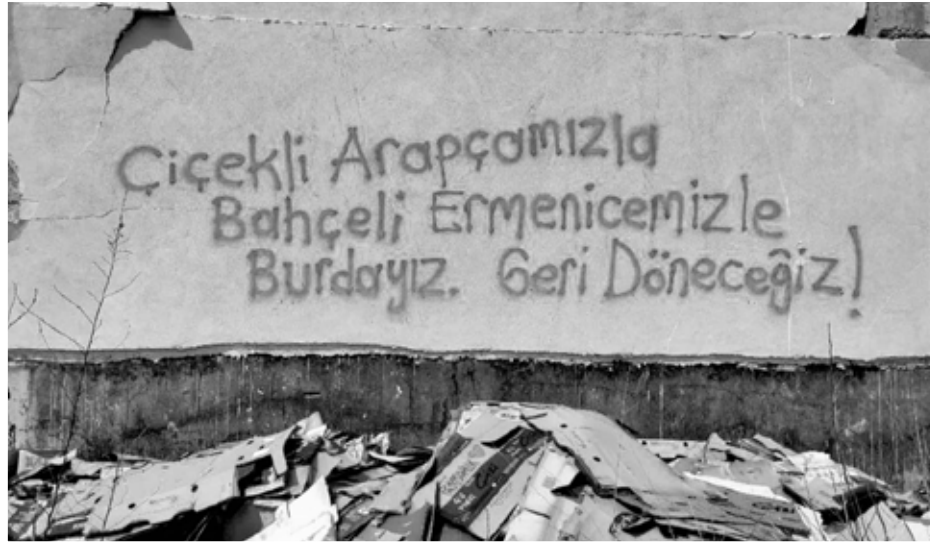 Çiçekli Arapçamızla
Bahçeli Ermenicemizle
Burdayız. Geri Döneceğiz!